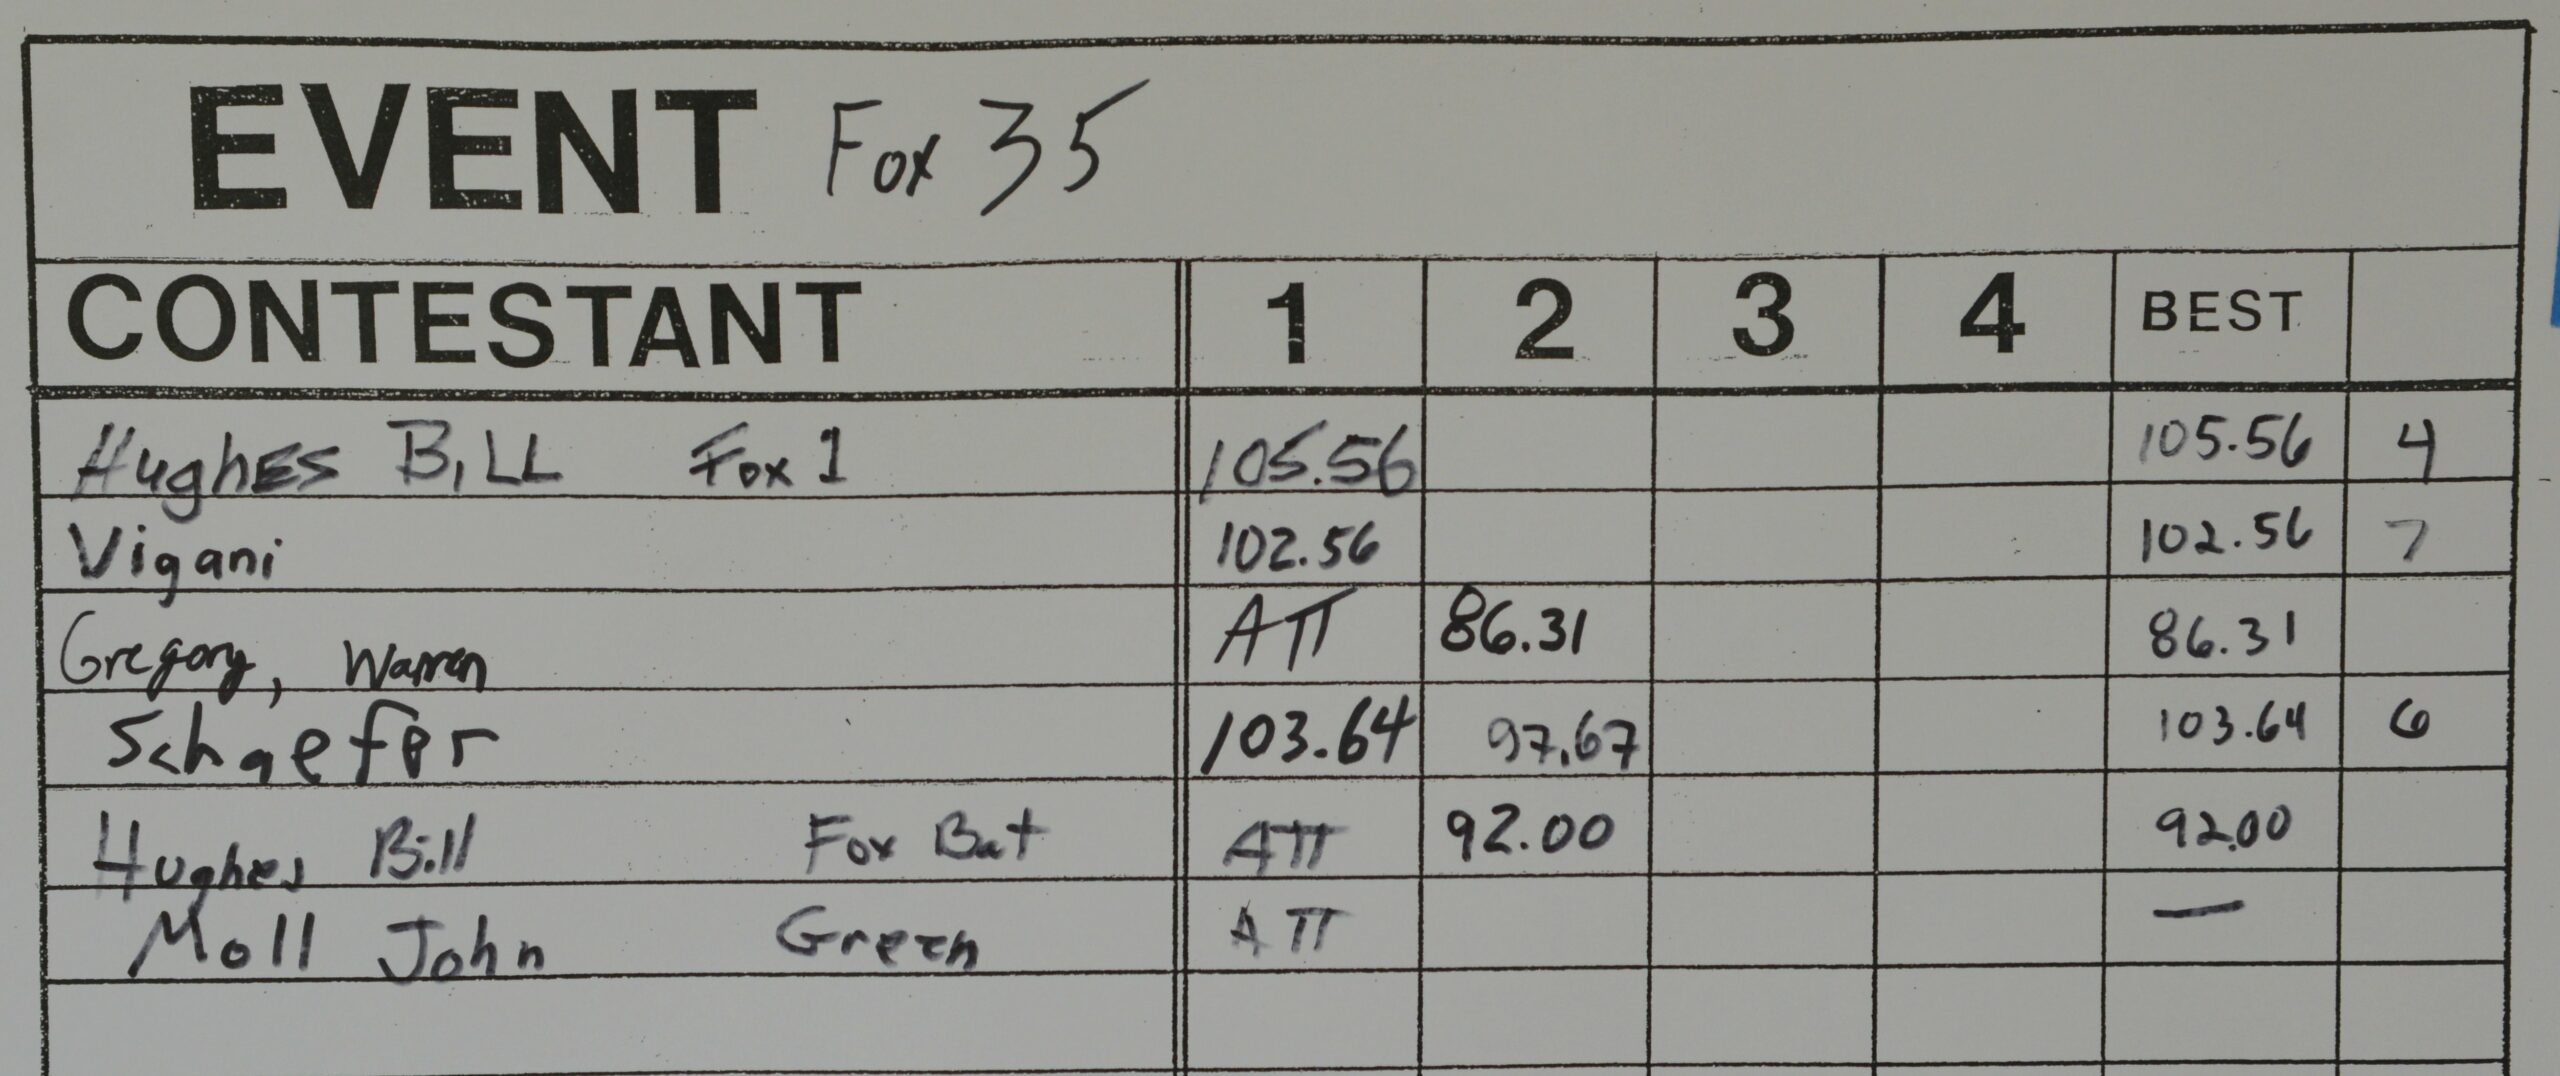 EVENT Fox 35
CONTESTANT 1 2 3 4 BEST
Hughes Bill Fox 1 105.56 105.56 4
Vigani 102.56 102.56 7
Gregory, Warren ATT 86.31 86.31
Schaefer 103.64 97.67 103.64 6
Hughes Bill Fox Bat ATT 92.00 92.00
Moll John Green ATT —